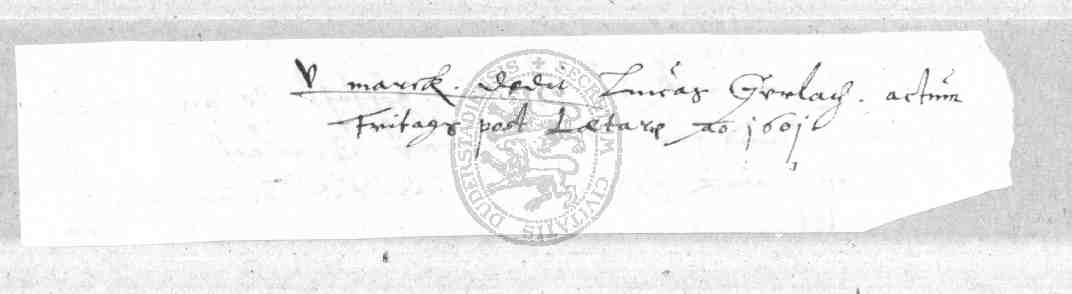 V marck. dedit Lucas Gerlach. actum
Fritags post Lætare ao 1601
SECRETUM CIVITATIS DUDERSTADIENSIS